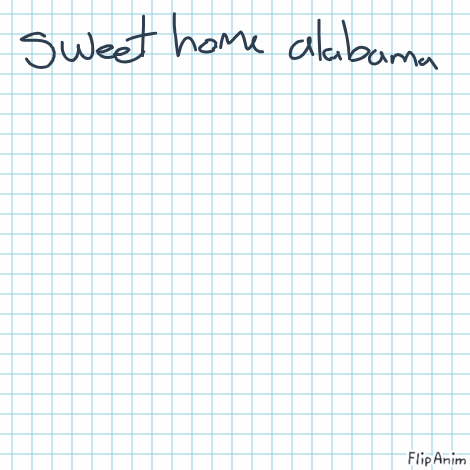 Sweet home alabama
FlipAnim